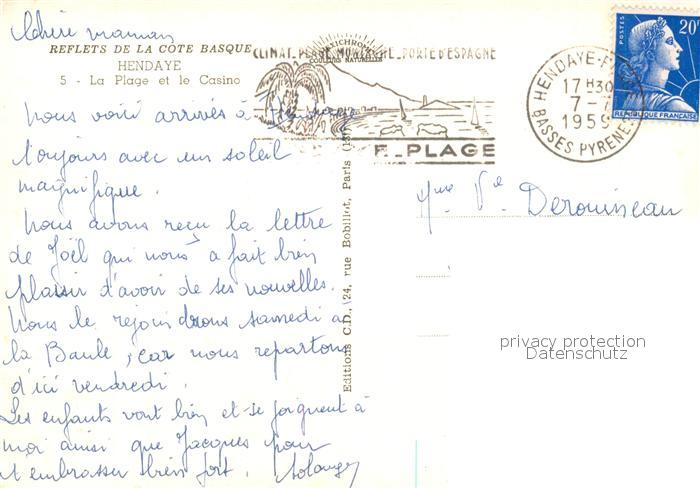 Chère maman
REFLETS DE LA COTE BASQUE
HENDAYE
5 - La Plage et le Casino
Nous voici arrivés à Hendaye
toujours avec un soleil
magnifique.
Nous avons reçu la lettre
de Joël qui nous a fait bien
plaisir d'avoir de ses nouvelles.
Nous le rejoindrons samedi à
la Baule, car nous repartons
d'ici vendredi.
Les enfants vont bien et se joignent à
moi ainsi que Jacques pour
t'embrasser bien fort. Solange
MEXICHROME
COULEURS NATURELLES
Editions C.D., 124, rue Bobillot, Paris (13
CLIMAT_PLAGE_MONTAGNE_PORTE D'ESPAGNE
E_PLAGE
HENDAYE-P
17 H30
7-
1959
BASSES PYRENEES
POSTES
20F
REPUBLIQUE FRANÇAISE
Mme Ve Derouineau
privacy protection
Datenschutz